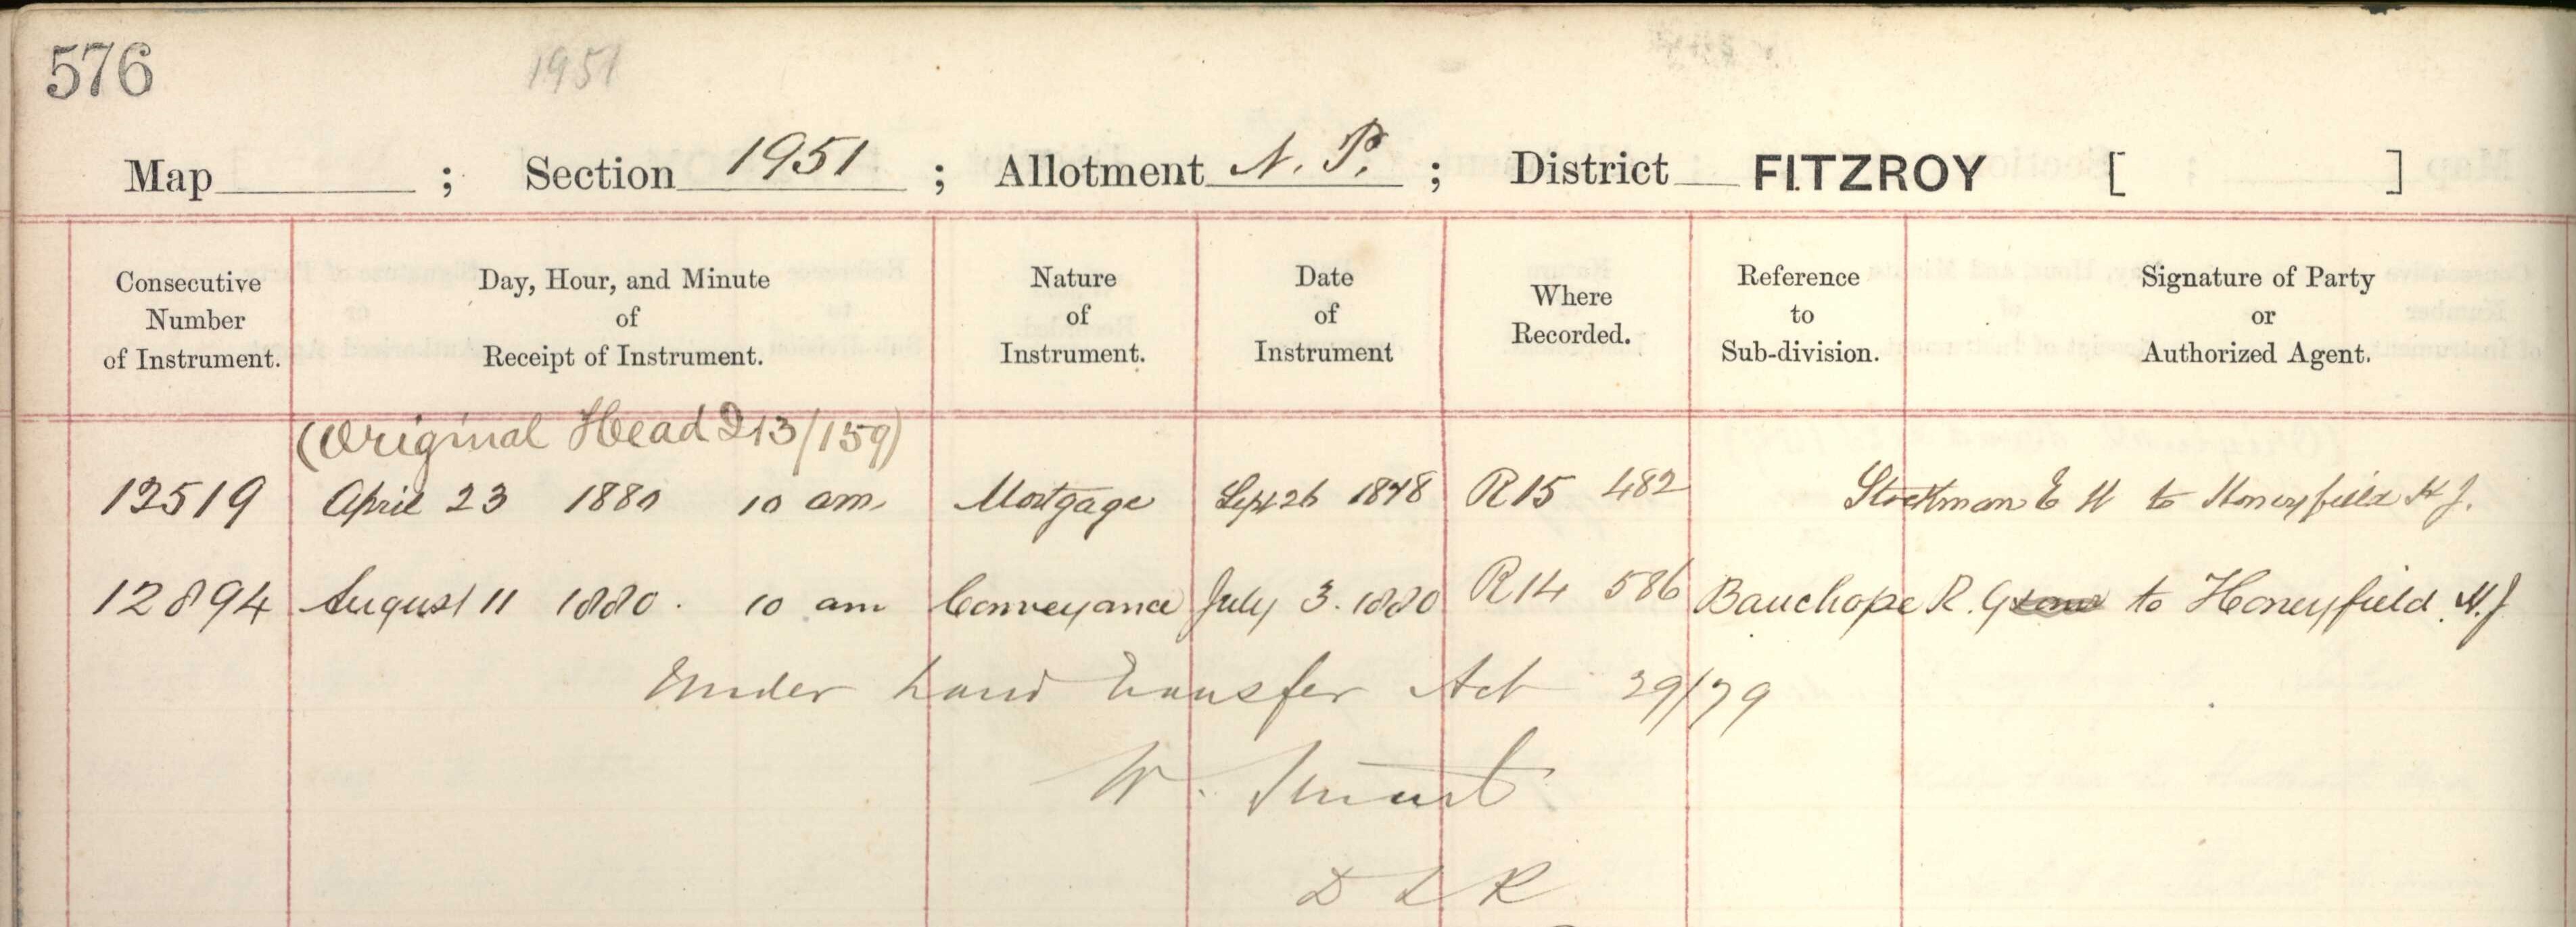 576
1951
Map ; Section 1951 ; Allotment N. P. ; District FITZROY [ ]
Consecutive Number of Instrument. Day, Hour, and Minute of Receipt of Instrument. Nature of Instrument. Date of Instrument Where Recorded. Reference to Sub-division. Signature of Party or Authorized Agent.
(Original Head D13/159)
12519 April 23 1880 10 am. Mortgage Sept 26 1878 R15 482 Stockman E H to Honeyfield H J.
12894 August 11 1880. 10 am Conveyance July 3. 1880 R14 586 Bauchope R. G to Honeyfield H. J
Under Land Transfer Act 29/79
W. Stuart
D L R